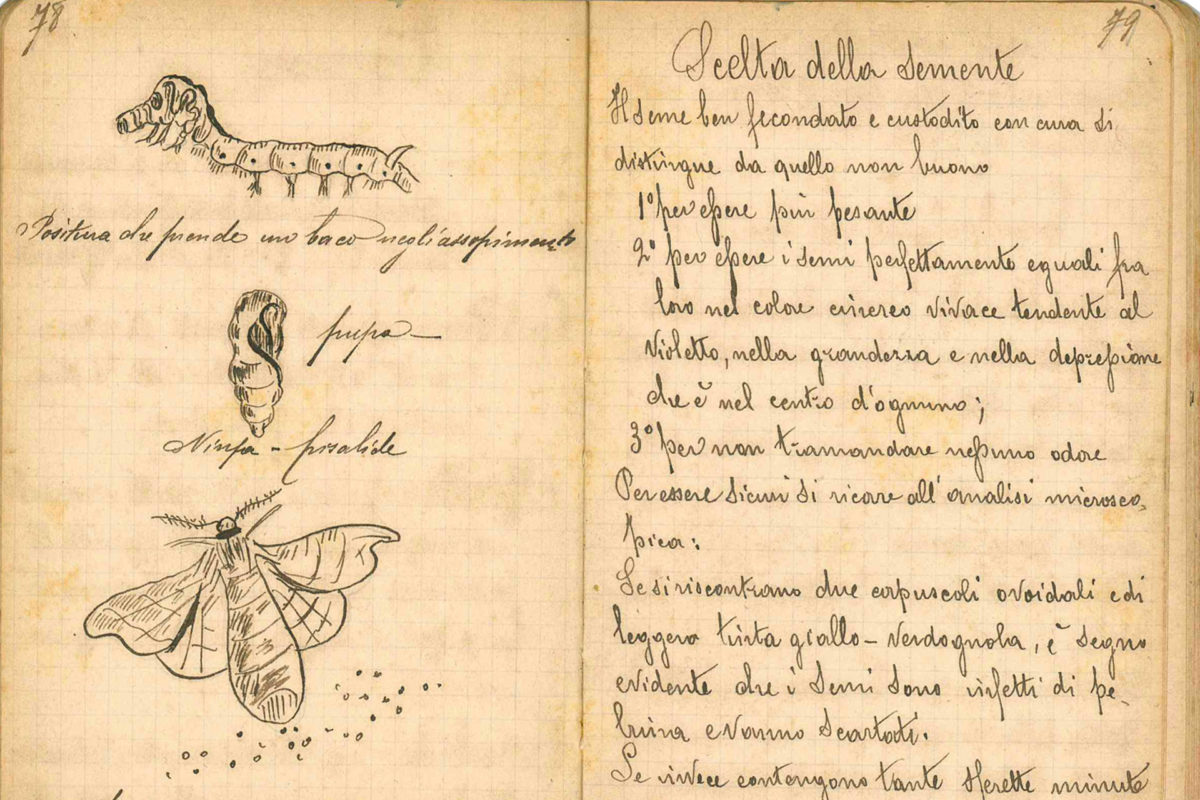 78
Positura che prende un baco negli assopimenti
pupa —
Ninfa - frisalide
79
Scelta della semente
Il seme ben fecondato e custodito con cura si
distingue da quello non buono
1° per essere più pesante
2° per essere i semi perfettamente eguali fra
loro nel colore cinereo vivace tendente al
violetto, nella grandezza e nella depressione
che è nel centro d'ognuno;
3° per non tramandare nessuno odore
Per essere sicuri si ricore all'analisi microsco-
pica:
Se si riscontrano due corpuscoli ovoidali e di
leggera tinta giallo-verdognola, è segno
evidente che i semi sono infetti di pe-
brina e vanno scartati.
Se invece contengono tante sferette minute